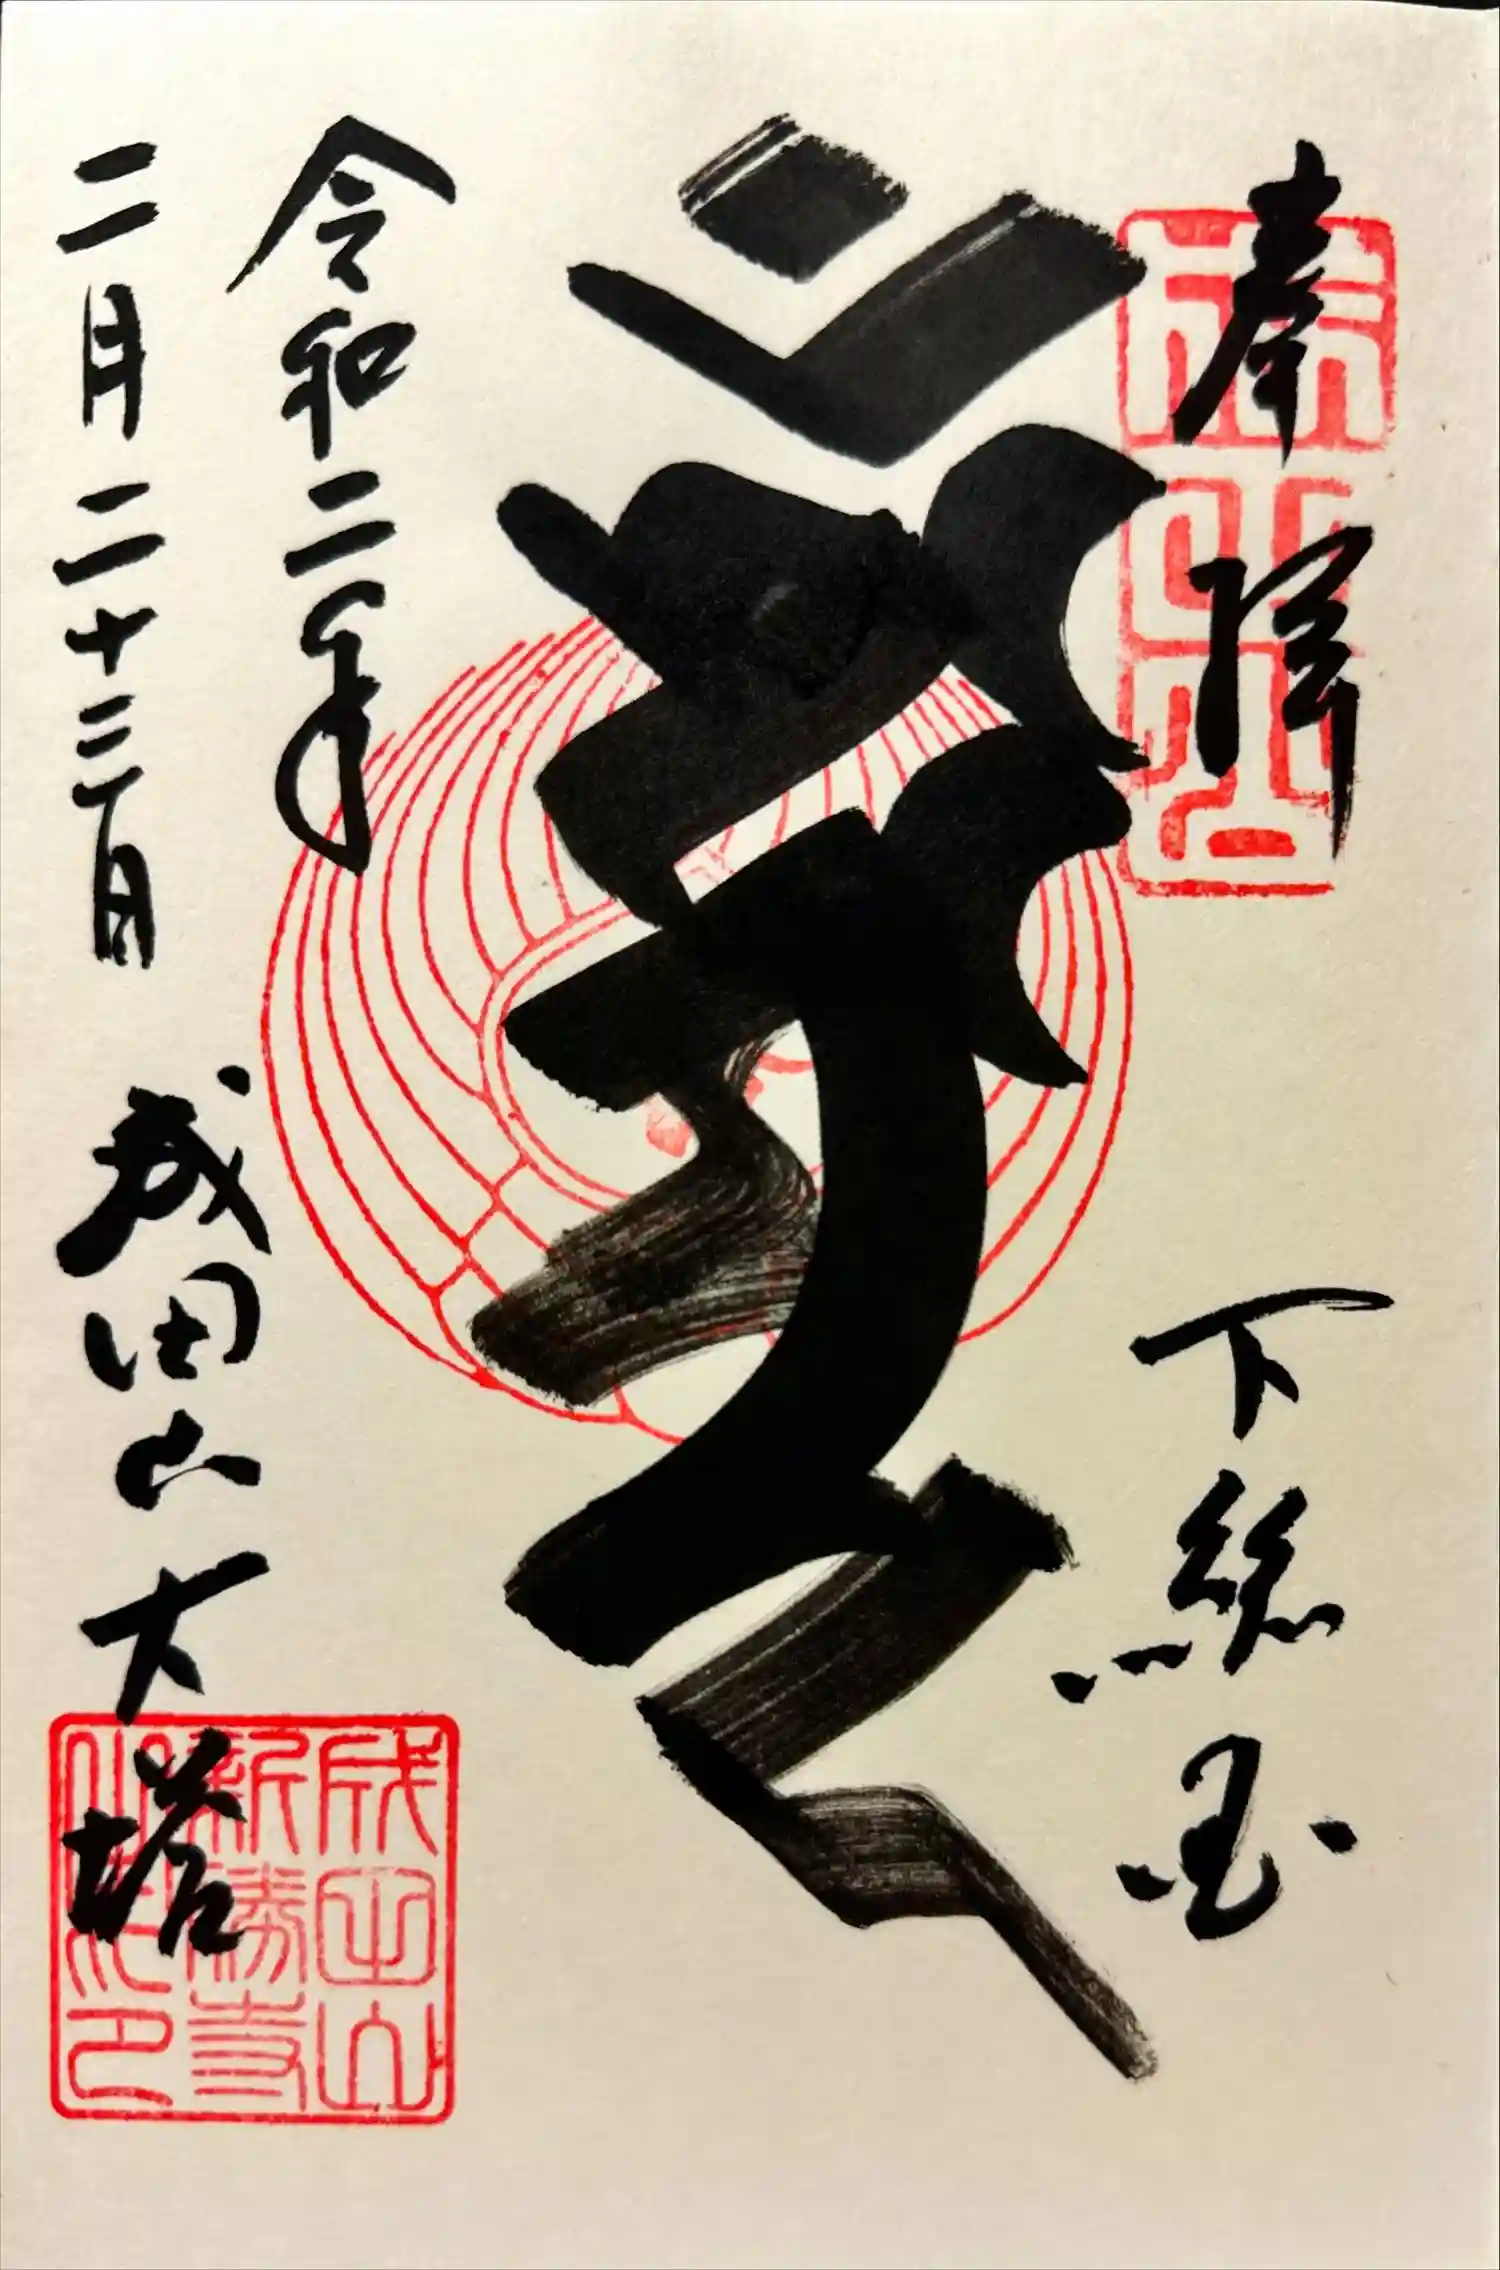 奉拝
下総国
令和二年
二月二十三日
成田山大塔
成田山
成田山
新勝寺
印